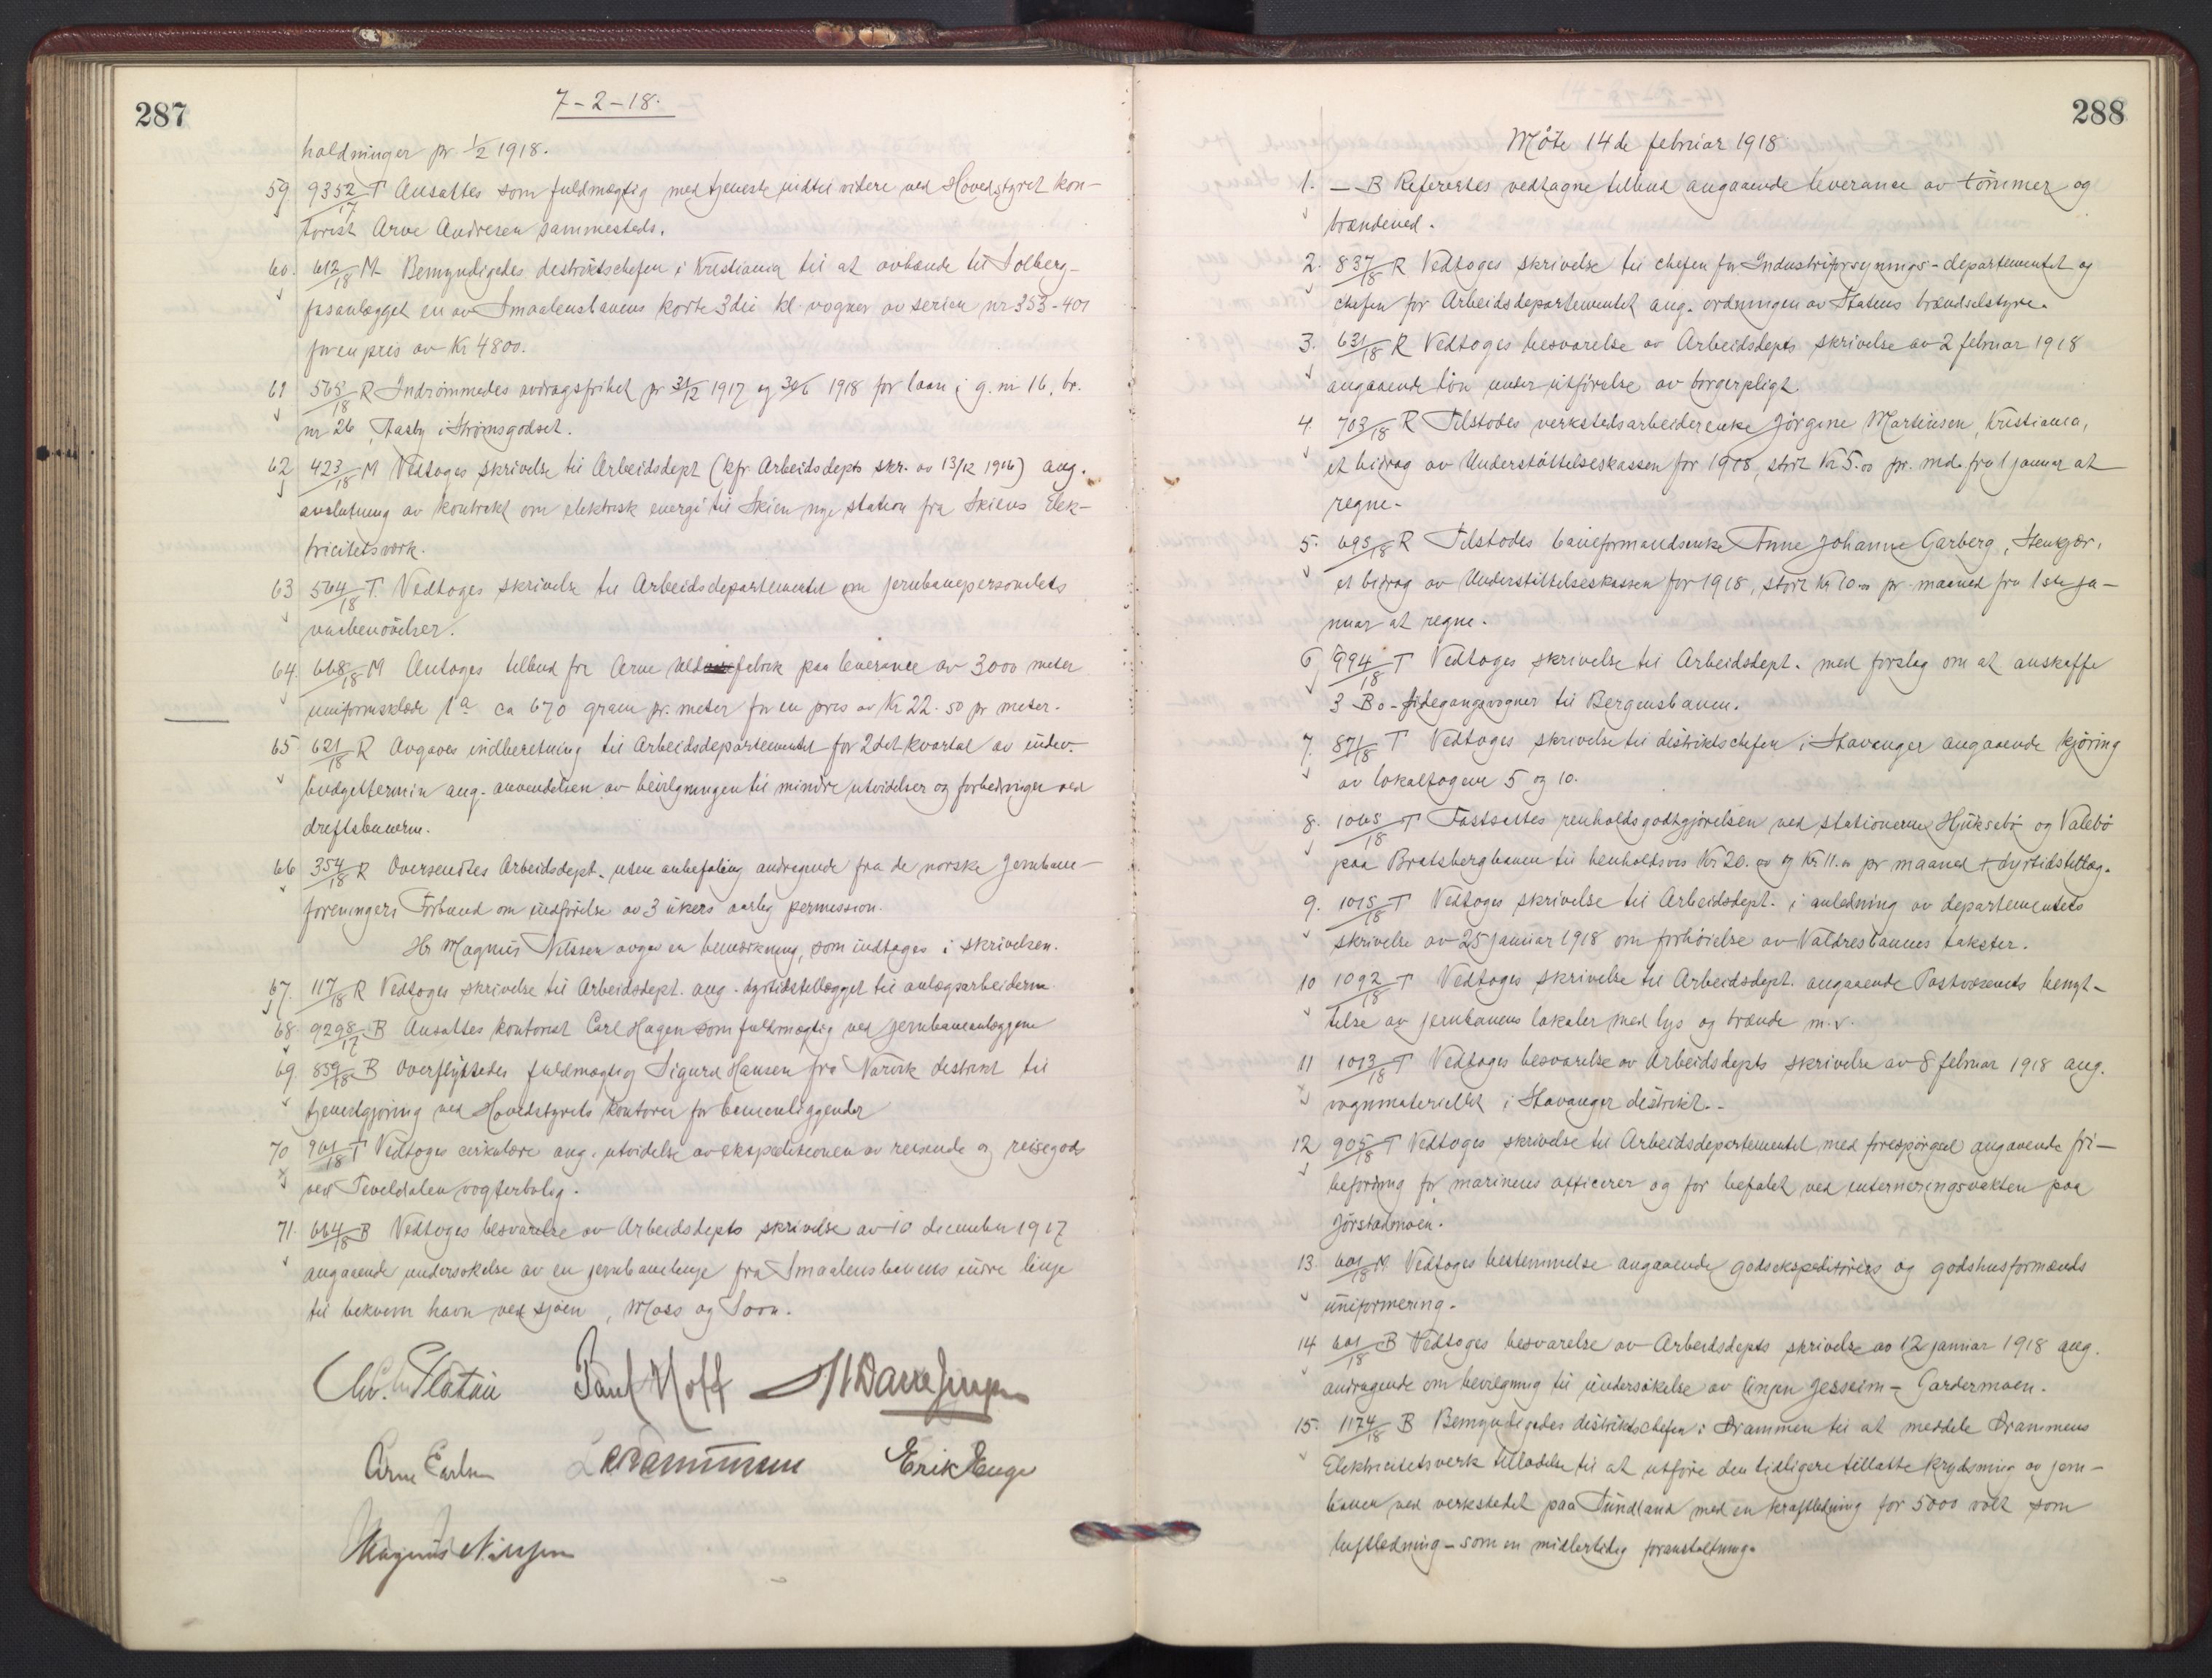 287
7-2-18.
holdninger pr 1/2 1918.
59. 9352/17 T Ansattes som fuldmægtig med tjeneste indtil videre ved Hovedstyret kon-
torist Arve Andresen sammesteds.
60. 612/18 M Bemyndigedes distriktschefen i Kristiania til at avhænde til Solberg-
fosanlægget en av Smaalensbanens korte 3die kl. vogner av serien nr 353-401
for en pris av Kr 4800.
61 565/18 R Indrømmedes avdragsfrihet pr 31/12 1917 og 30/6 1918 for laan i g. nr 16, br.
nr 26, Aasly i Strømsgodset.
62 423/18 M Vedtoges skrivelse til Arbeidsdept (kfr. Arbeidsdepts skr. av 13/12 1916) ang.
avslutning av kontrakt om elektrisk energi til Skien nye station fra Skiens Elek-
tricitetsverk.
63 564/18 T. Vedtoges skrivelse til Arbeidsdepartementet om jernbanepersonalets
vaabenøvelser.
64. 668/18 M Antoges tilbud fra Arne fabrik paa leverance av 3000 meter
uniformsklæde 1a ca 670 gram pr. meter for en pris av Kr 22.50 pr meter.
65 621/18 R Avgaves indberetning til Arbeidsdepartementet for 2det kvartal av indev.
budgettermin ang. anvendelsen av bevilgningen til mindre utvidelser og forbedringer ved
driftsbanerne.
66 354/18 R Oversendtes Arbeidsdept. uten anbefaling andragende fra de norske Jernbane-
foreningers Forbund om indførelse av 3 ukers aarlig permission.
Hr Magnus Nilssen avgav en bemerkning, som indtages i skrivelsen.
67. 117/18 R Vedtoges skrivelse til Arbeidsdept. ang. dyrtidstillægget til anlægsarbeiderne.
68 9298/17 B Ansattes kontorist Carl Hagen som fuldmægtig ved jernbaneanlæggene
69. 859/18 B Overflyttedes fuldmægtig Sigurd Hansen fra Narvik distrikt til
tjenestgjøring ved Hovedstyrets kontorer for
70 901/18 T Vedtoges cirkulære ang. utvidelse av ekspeditionen av reisende og reisegods
ved Teveldalen vogterbolig.
71. 664/18 B Vedtoges besvarelse av Arbeidsdepts skrivelse av 10 december 1917
angaaende undersøkelse av en jernbanelinje fra Smaalensbanens indre linje
til bekvem havn ved sjøen, Moss og Soon.
Chr. Platou Paul Hoff
Arne Carlsen Erik Enge
Magnus Nilssen
288
Møte 14de februar 1918
1. — B Refererdes vedtagne tilbud angaaende leverance av tømmer og
brændeved.
2. 837/18 R Vedtoges skrivelse til chefen for Industriforsynings-departementet og
chefen for Arbeidsdepartementet ang. ordningen av Statens brændselstyre.
3. 631/18 R Vedtoges besvarelse av Arbeidsdepts skrivelse av 2 februar 1918
angaaende løn under utførelse av borgerpligt.
4. 703/18 R Tilstodes verkstedsarbeiderenke Jørgine Martinsen, Kristiania,
et bidrag av Understøttelseskassen for 1918, stort Kr 5.00 pr. md. fra 1 januar at
regne.
5. 695/18 R Tilstodes baneformandsenke Anne Johanne Garberg, Stenkjær,
et bidrag av Understøttelseskassen for 1918, stort Kr 10.00 pr maaned fra 1ste ja-
nuar at regne.
6. 994/18 T Vedtoges skrivelse til Arbeidsdept. med forslag om at anskaffe
3 Bo-sidegangsvogner til Bergensbanen.
7. 871/18 T Vedtoges skrivelse til distriktschefen i Stavanger angaaende kjøring
av lokaltogene 5 og 10.
8. 1065/18 T Fastsattes renholdsgodtgjørelsen ved stationerne Hjuksebø og Valebø
paa Bratsbergbanen til henholdsvis Kr 20.00 og Kr 11.00 pr maaned + dyrtidstillæg.
9. 1015/18 T Vedtoges skrivelse til Arbeidsdept. i anledning av departementets
skrivelse av 25 januar 1918 om forhøielse av Valdresbanens takster.
10 1092/18 T Vedtoges skrivelse til Arbeidsdept. angaaende Postvæsenets benyt-
telse av jernbanens lokaler med lys og brænde m.v.
11 1013/18 T Vedtoges besvarelse av Arbeidsdepts skrivelse av 8 februar 1918 ang.
vognmateriellet i Stavanger distrikt.
12 905/18 T Vedtoges skrivelse til Arbeidsdepartementet med forespørgsel angaaende fri-
befordring for marinens officerer og for befalet ved interneringsvakten paa
Jørstadmoen.
13. 601/18 M. Vedtoges bestemmelse angaaende godsekspeditørers og godshusformænds
uniformering.
14 601/18 B Vedtoges besvarelse av Arbeidsdepts skrivelse av 12 januar 1918 ang.
andragende om bevilgning til undersøkelse av linjen Jessheim - Gardermoen.
15. 1174/18 B Bemyndigedes distriktschefen i Drammen til at meddele Drammens
Elektricitetsverk tilladelse til at utføre den tidligere tillatte krydsning av jern-
banen ved verkstedet paa Sundland med en kraftledning for 5000 volt som
luftledning - som en midlertidig foranstaltning.